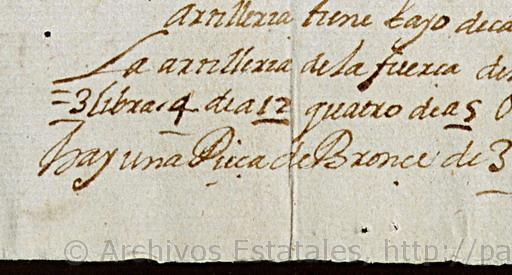 artilleria tiene bajo deca
La artilleria de la fuerca de
=3 libras 4 de a 12 quatro de a 5
hay una Pieça de Bronce de 3
© Archivos Estatales, http://pa